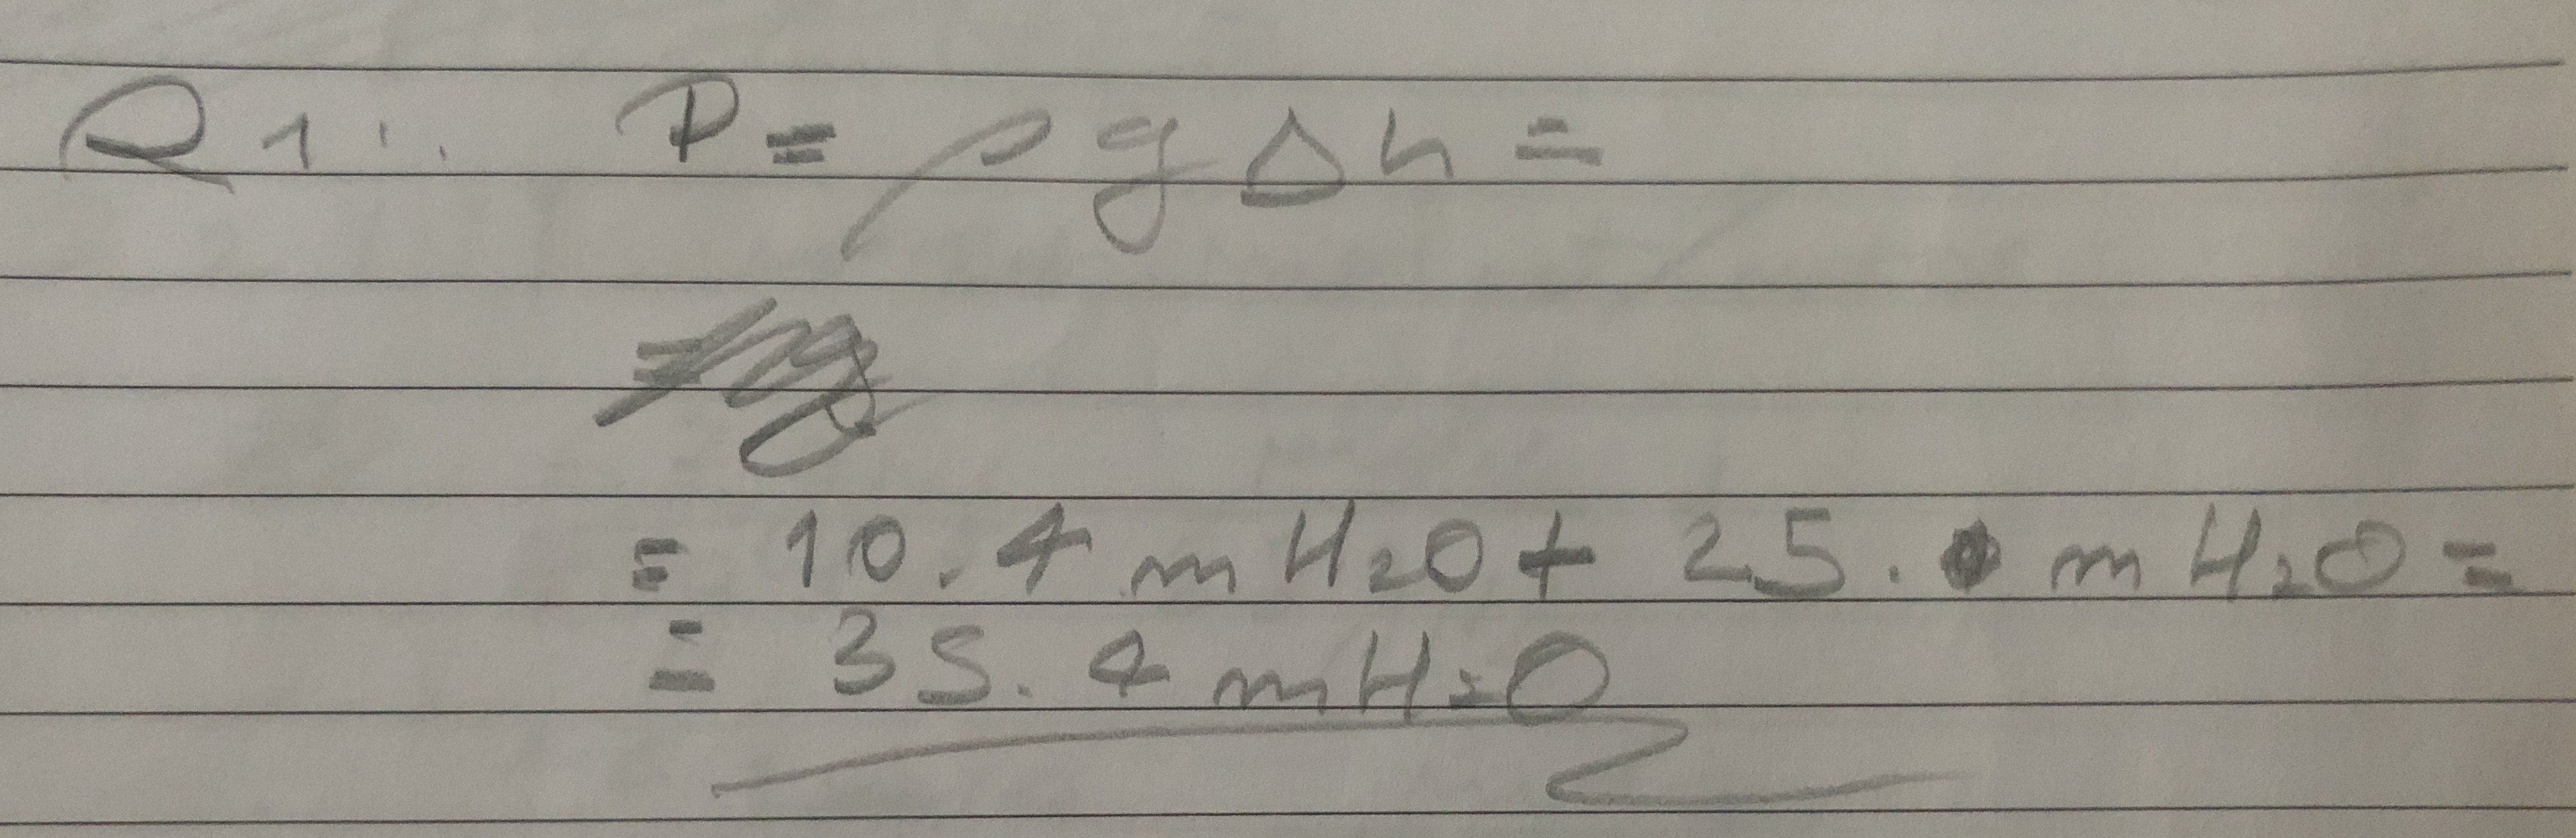 Q1: P = ρgΔh =
= 10.4 mH₂O + 25. mH₂O =
= 35.4 mH₂O